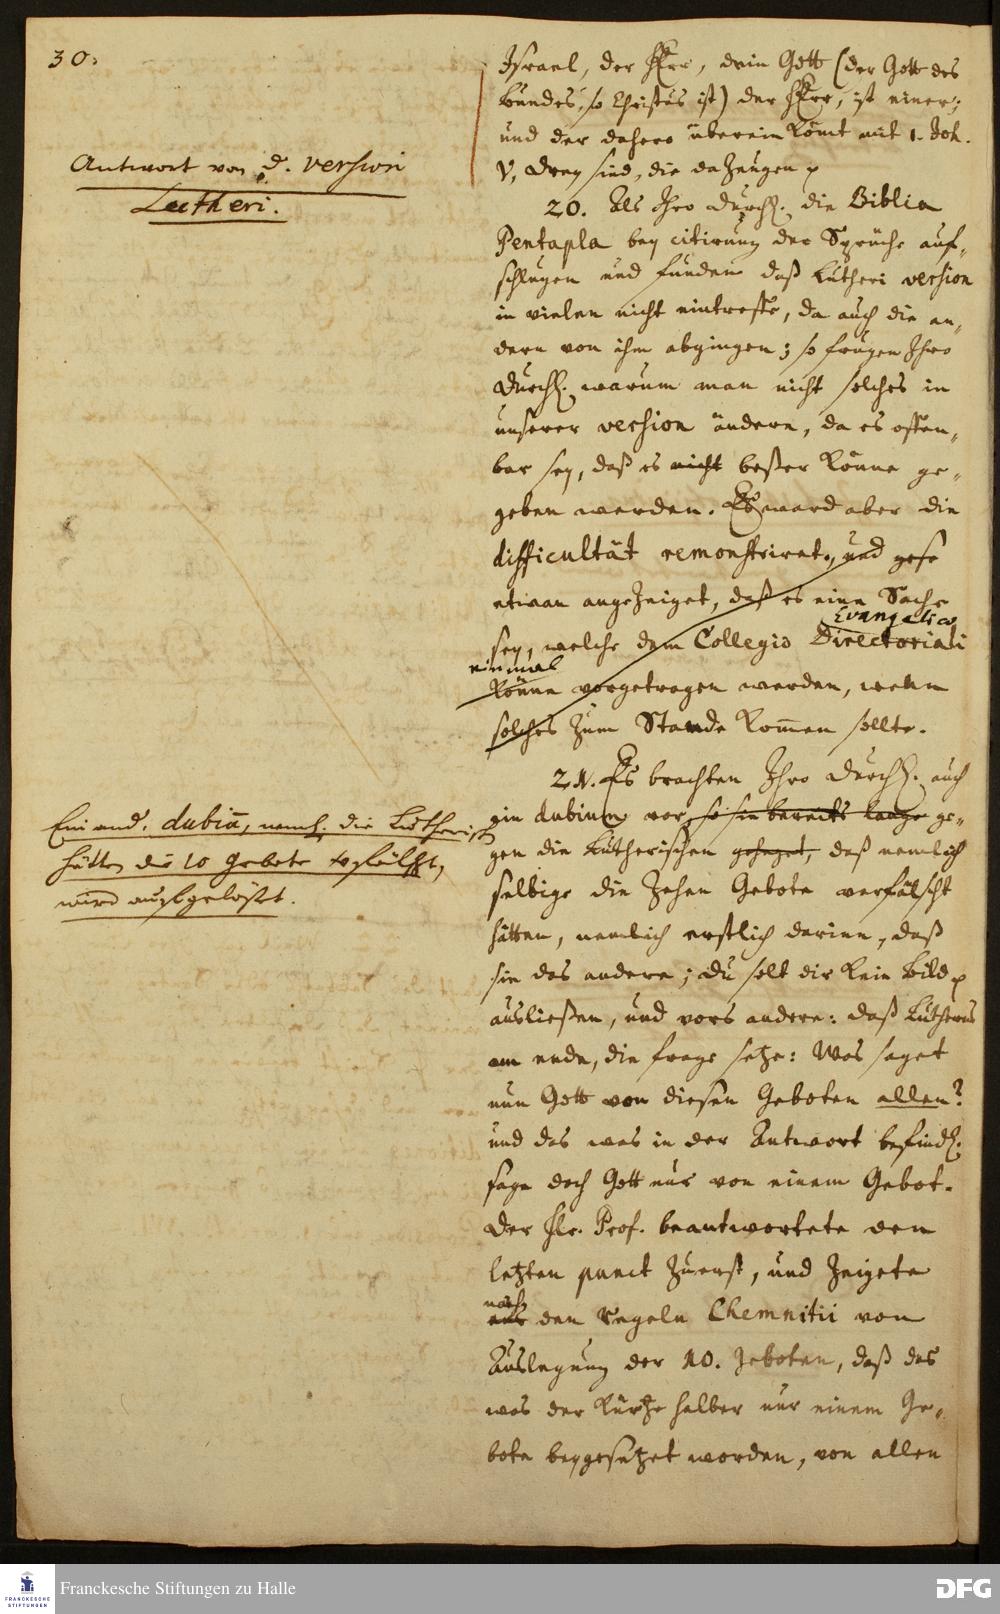 30.
Israel, der HErr, dein Gott (der Gott des
Bundes, so Christus ist) der HErr, ist einer;
und der dahero überein kömt mit 1. Joh.
V, drey sind, die da zeugen
Antwort von d. version
Lutheri.
20. Als Ihro Durchl. die Biblia
Pentapla bey citirung der Sprüche auf-
schlugen und funden daß Lutheri version
in vielen nicht eintreffe, da auch die an-
dern von ihm abgingen; so frugen Ihro
Durchl. warum man nicht solches in
unserer version ändere, da es offen-
bar sey, daß es nicht beßer könne ge-
geben werden. Es ward aber die
difficultät remonstriret, und
etwan angezeiget, daß es eine Sache
Evangelico
sey, welche dem Collegio Directoriali
einmal
könne vorgetragen werden, wenn
solches zum Stande kommen sollte.
21. Es brachten Ihro Durchl. auch
ein dubium vor, so sie bereits lange ge-
gen die Lutherischen geheget, daß nemlich
selbige die Zehen Gebote verfälscht
hätten, nemlich erstlich darinn, daß
sie das andere; du solt dir kein Bild
ausließen, und vors andere: daß Lutherus
am ende, die frage setze: Was saget
nun Gott von diesen Geboten allen?
und das was in der Antwort befindl.
sage doch Gott nur von einem Gebot.
Der Hr. Prof. beantwortete den
letzten punct zuerst, und zeigete
nach
aus den regeln Chemnitii von
Auslegung der 10. Geboten, daß das
was der Kürtze halber nur einem Ge-
bote beygesetzet worden, von allen
Ein and. dubiu, neml. die Lutherisch
hätten die 10 Gebote verfälscht,
wird aufgelöset.
Franckesche Stiftungen zu Halle
FRANCKESCHE
STIFTUNGEN
DFG